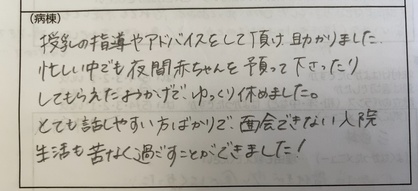 （病棟）
授乳の指導やアドバイスをして頂け、助かりました。
忙しい中でも夜間赤ちゃんを預って下さったり
してもらえたおかげで、ゆっくり休めました。
とても話しやすい方ばかりで、面会できない入院
生活も苦なく過ごすことができました！